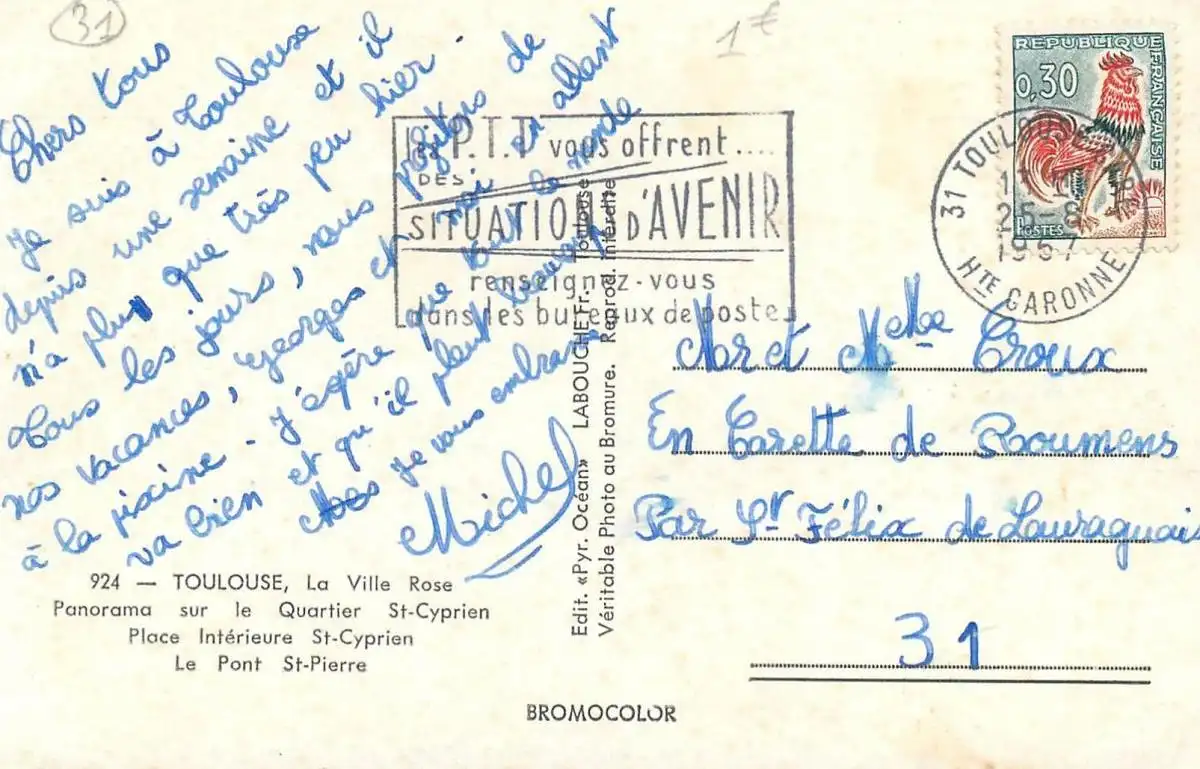 31
1€
Chers tous
je suis à Toulouse
depuis une semaine et il
n'a plu que très peu hier.
Tous les jours, nous profitons de
nos vacances, Georges et moi en allant
à la piscine - j'espère que tout le monde
va bien et qu'il pleut beaucoup
je vous embrasse
Michel
924 — TOULOUSE, La Ville Rose
Panorama sur le Quartier St-Cyprien
Place Intérieure St-Cyprien
Le Pont St-Pierre
Edit. «Pyr. Océan» LABOUCHE Fr. Toulouse
Véritable Photo au Bromure. Reprod. interdite
BROMOCOLOR
P.T.T vous offrent....
DES
SITUATIONS D'AVENIR
renseignez-vous
dans les bureaux de poste
REPUBLIQUE FRANÇAISE
0,30
POSTES
31 TOULOUSE
25-8
1967
HTE GARONNE
Mr et Melle Croux
En Tarette de Roumens
Par St Félix de Lauraguais
31